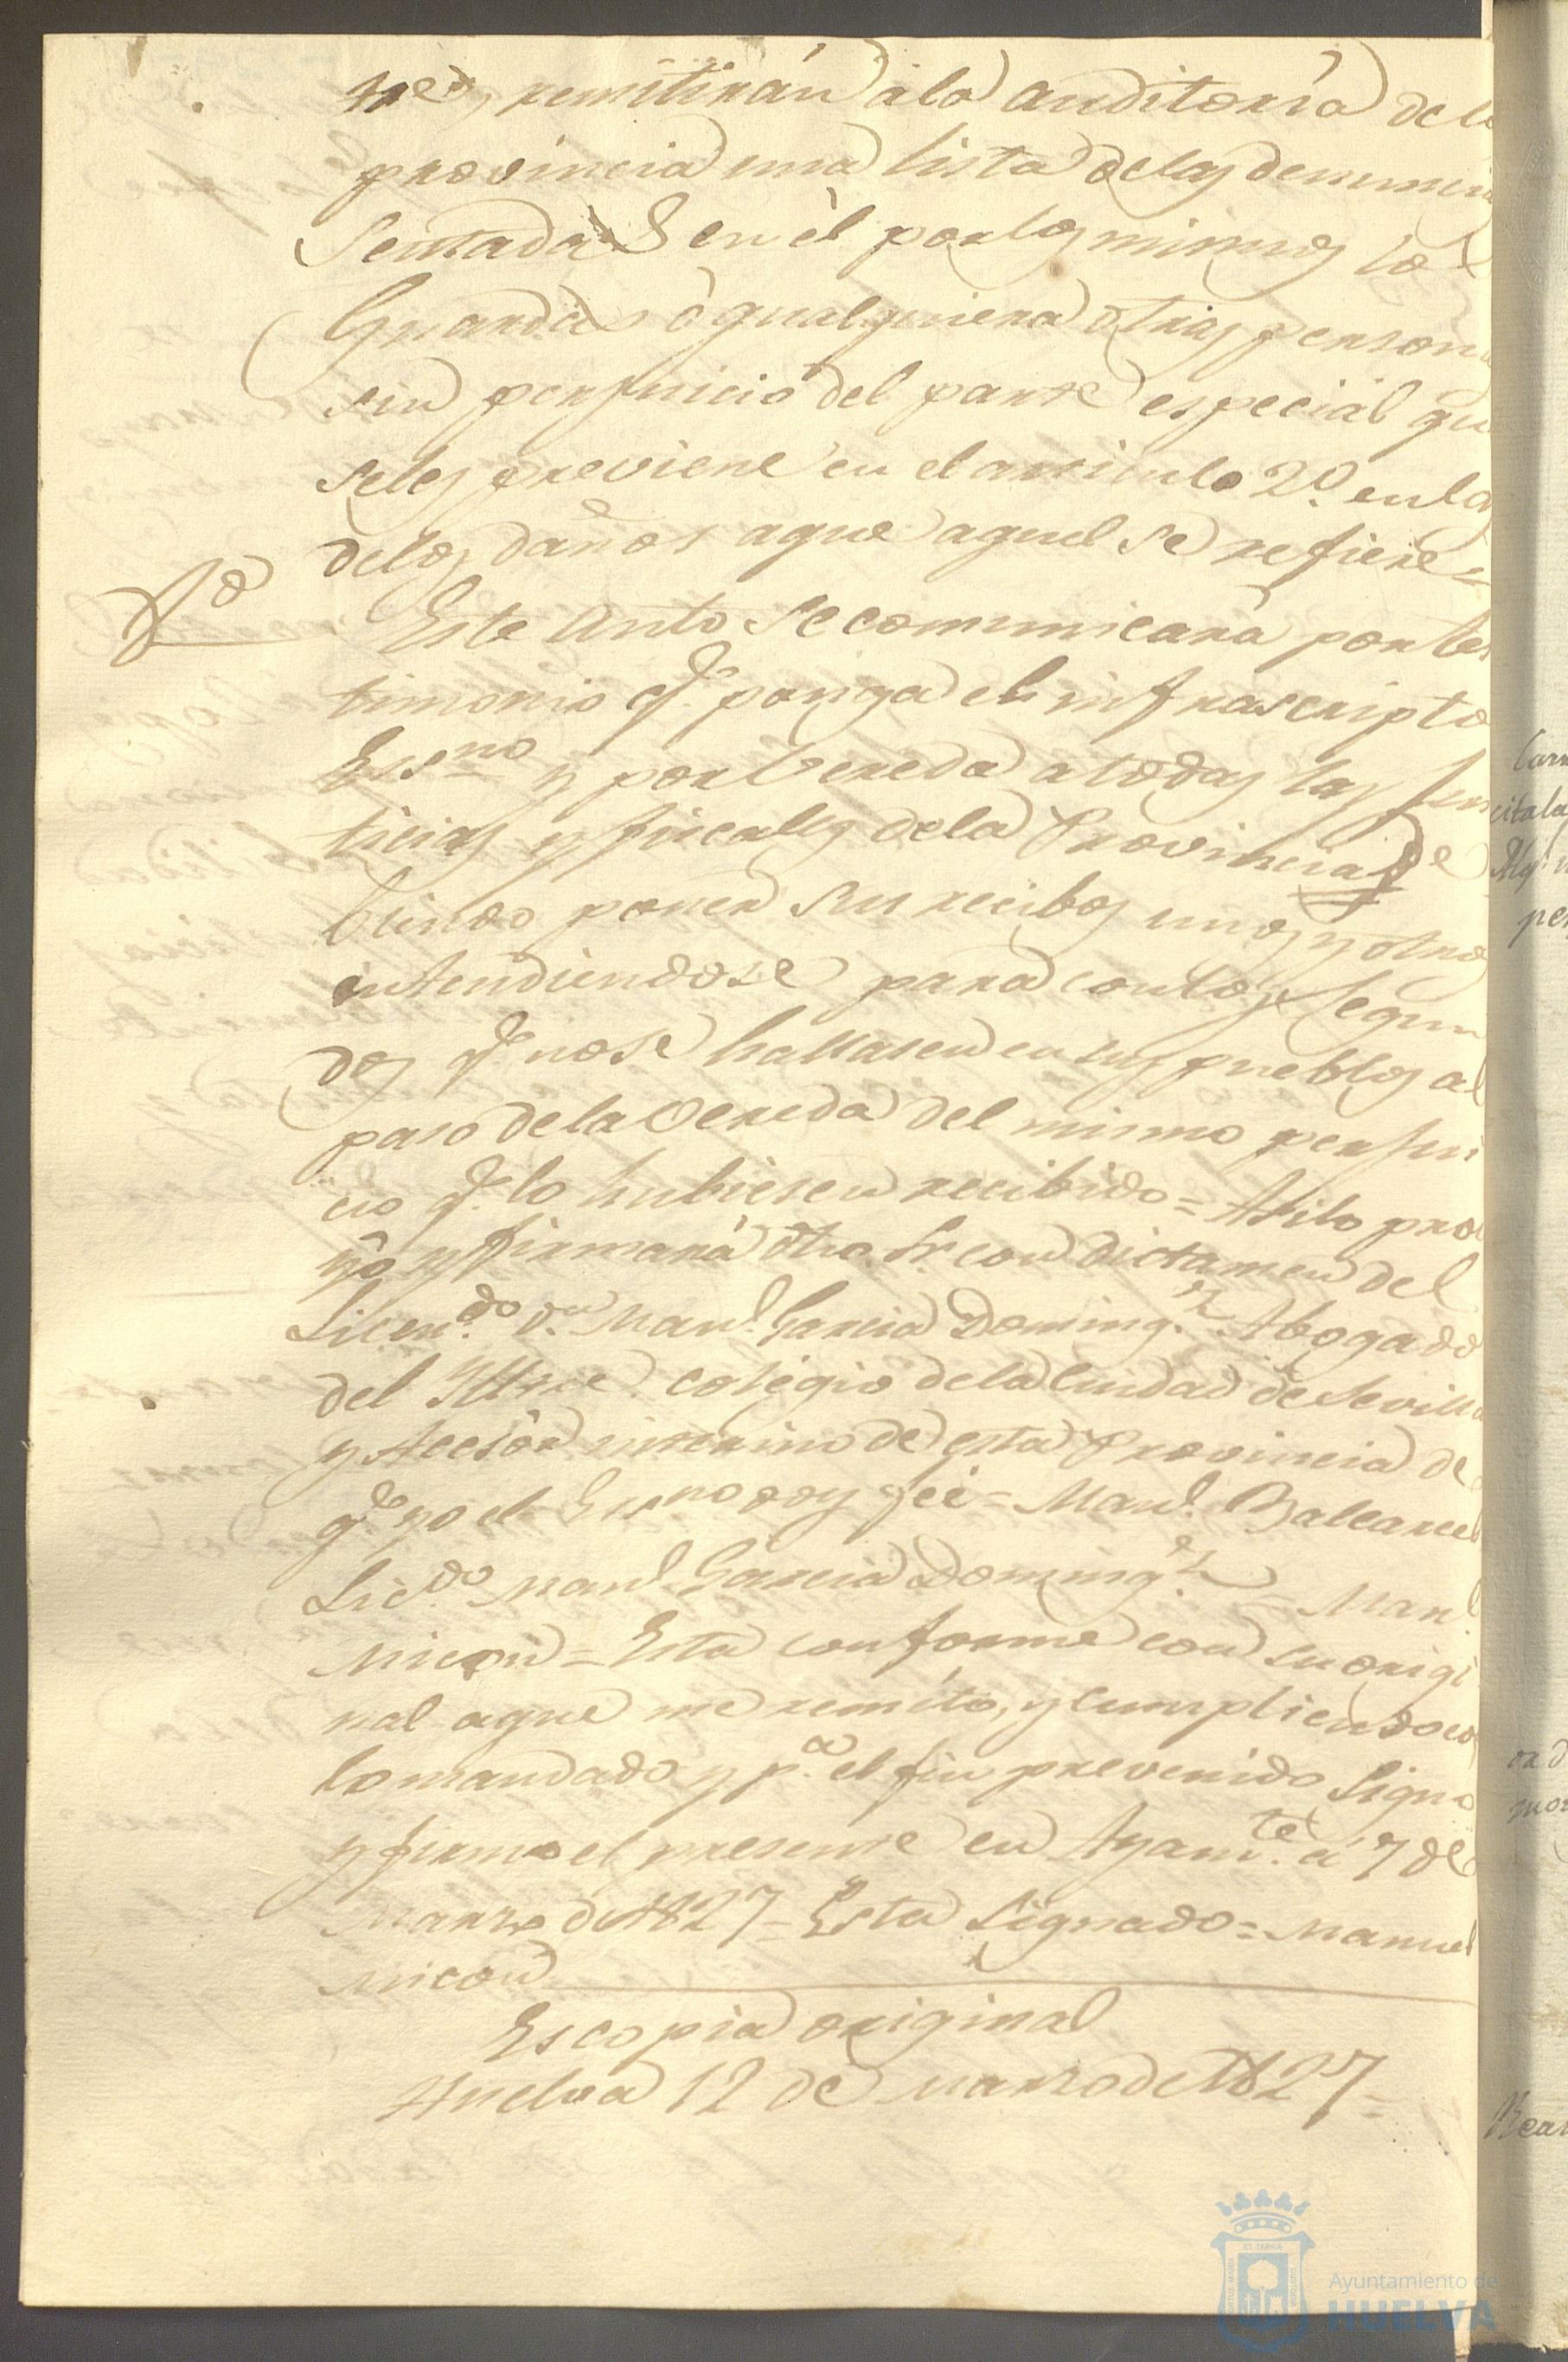 tres, remitirán á la auditoría de la
provincia una lista de las denuncias
sentadas en él por los mismos los
Guardas ó qualquiera otras personas
sin perjuicio del parte especial que
se les previene en el articulo 2º en las
de los daños aque aquel se refiere =
Este Auto se comunicará por tes
timonio qe. ponga el infrascripto
Essno y por Vereda a todas las Jus
ticias y fiscales de la Provincia de
biendo poner su recibos unos y otros
entendiendose para con los Segun
dos qe. nose hallasen en sus pueblos al
paso de la Vereda del mismo perjui
cio qe. lo hubiesen recibido = Asilo pro
yó y firmará dho. Sr. con dictamen del
Licendo. Dn. Manl. Garcia Domingz. Abogado
del Yltre. colegio de la Ciudad de Sevilla
y Acesór interino de esta Provincia de
qe. yo el Essno doy feé = Manl. Balcarcel
Licdo. Manl. Garcia Domingz. = Manl.
Micon = Esta conforme con su origi
nal aque me remito, y cumpliendo con
lo mandado y pa. el fin prevenido Signo
y firmo el presente en Ayamte. á 7 de
Marzo de 1827 = Esta Signado = Manuel
Micon
Es copia original
Huelva 12 de Marzo de 1827 =
Ayuntamiento de
HUELVA